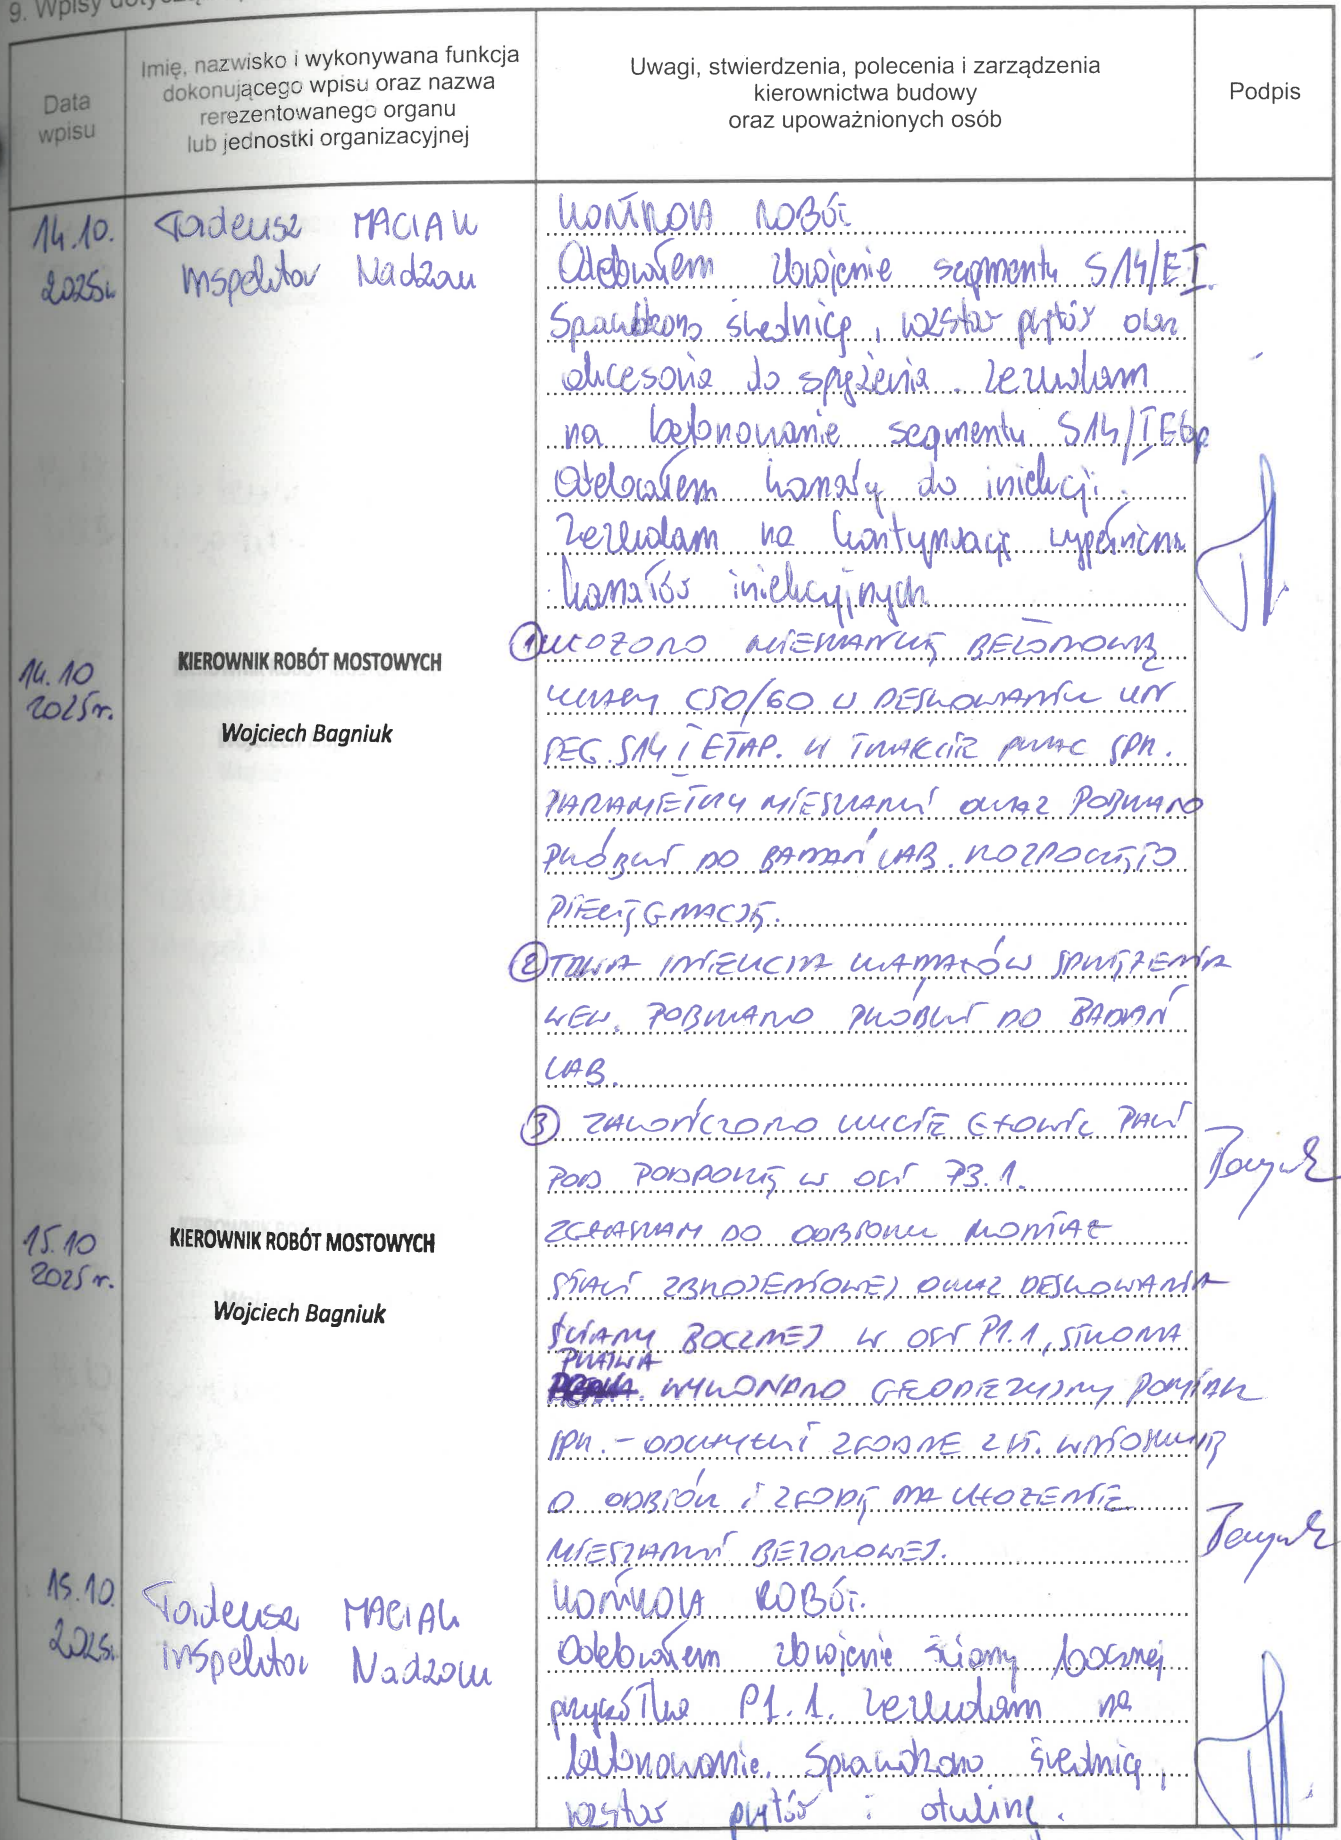 9. Wpisy
Data
wpisu
Imię, nazwisko i wykonywana funkcja
dokonującego wpisu oraz nazwa
rerezentowanego organu
lub jednostki organizacyjnej
Uwagi, stwierdzenia, polecenia i zarządzenia
kierownictwa budowy
oraz upoważnionych osób
Podpis
14.10.
2025r.
Tadeusz MACIAK
Inspektor Nadzoru
KONTROLA ROBÓT.
Odebrałem zbrojenie segmentu S14/EI.
Sprawdzono średnicę, rozstaw prętów oraz
akcesoria do sprężenia. Zezwalam
na betonowanie segmentu S14/IEtap
Odebrałem kanały do iniekcji.
Zezwalam na kontynuację wypełniania
kanałów iniekcyjnych
14.10
2025r.
KIEROWNIK ROBÓT MOSTOWYCH
Wojciech Bagniuk
① UŁOŻONO MIESZANKĘ BETONOWĄ
KLASY C50/60 W DESKOWANIU UN
SEG. S14 I ETAP. W TRAKCIE PRAC SPR.
PARAMETRY MIESZANKI ORAZ POBRANO
PRÓBKI DO BADAŃ LAB. ROZPOCZĘTO
PIELĘGNACJĘ.
② TRWA INIEKCJA KANAŁÓW SPRĘŻENIA
WEW. POBRANO PRÓBKI DO BADAŃ
LAB.
③ ZAKOŃCZONO KUCIE GŁOWIC PALI
POD PODPORĘ W OSI P3.1.
15.10
2025r.
KIEROWNIK ROBÓT MOSTOWYCH
Wojciech Bagniuk
ZGŁASZAM DO ODBIORU MONTAŻ
STALI ZBROJENIOWEJ ORAZ DESKOWANIA
ŚCIANY BOCZNEJ W OSI P1.1, STRONA
PRAWA
WYKONANO GEODEZYJNY POMIAR
SPR. - ODCHYŁKI ZGODNE Z ST. WNIOSKUJĘ
O ODBIÓR I ZGODĘ NA UŁOŻENIE
MIESZANKI BETONOWEJ.
15.10.
2025r.
Tadeusz MACIAK
Inspektor Nadzoru
KONTROLA ROBÓT.
Odebrałem zbrojenie ściany bocznej
przyczółka P1.1. Zezwalam na
betonowanie. Sprawdzono średnicę,
rozstaw prętów i otulinę.